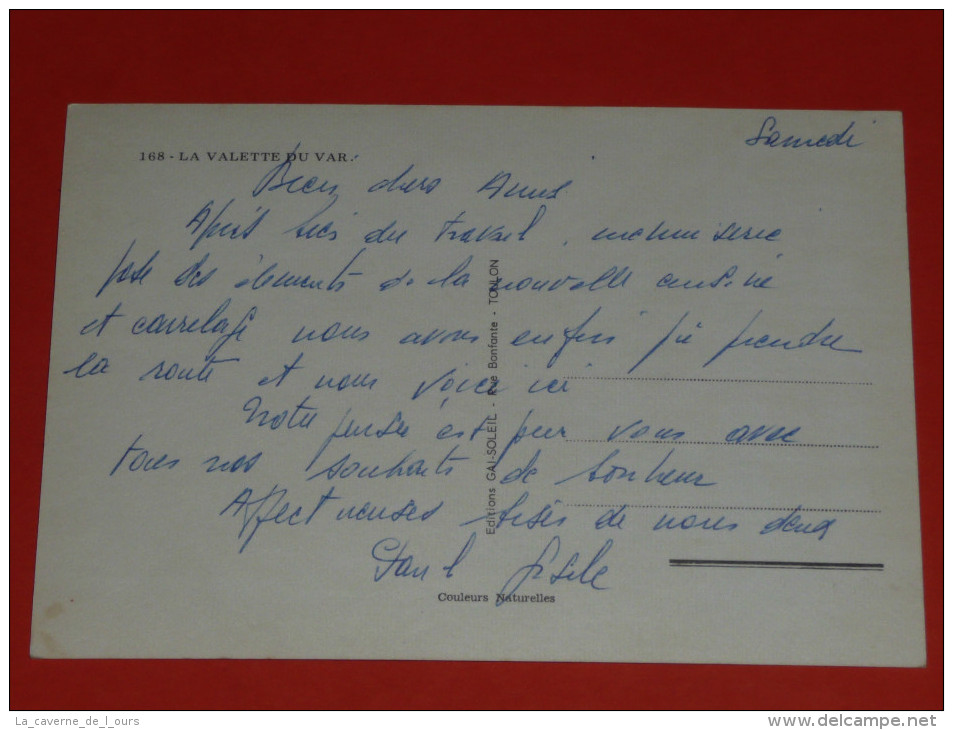 Samedi
168 - LA VALETTE DU VAR.
Bien chers Amis
Après du travail, menuiserie
pose des éléments de la nouvelle cuisine
et carrelage nous avons enfin pû prendre
la route et nous voici ici
Notre pensée est pour vous avec
tous nos souhaits de bonheur
Affectueuses bises de nous deux
Paul Gisèle
Editions GAI-SOLEIL - Rue Bonfante - TOULON
Couleurs Naturelles
La_caverne_de_l_ours
www.delcampe.net